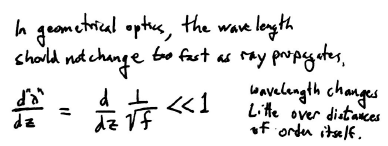 In geometrical optics, the wavelength
should not change too fast as ray propagates.
d"λ"/dz = d/dz 1/√f << 1
wavelength changes
little over distances
of order itself.